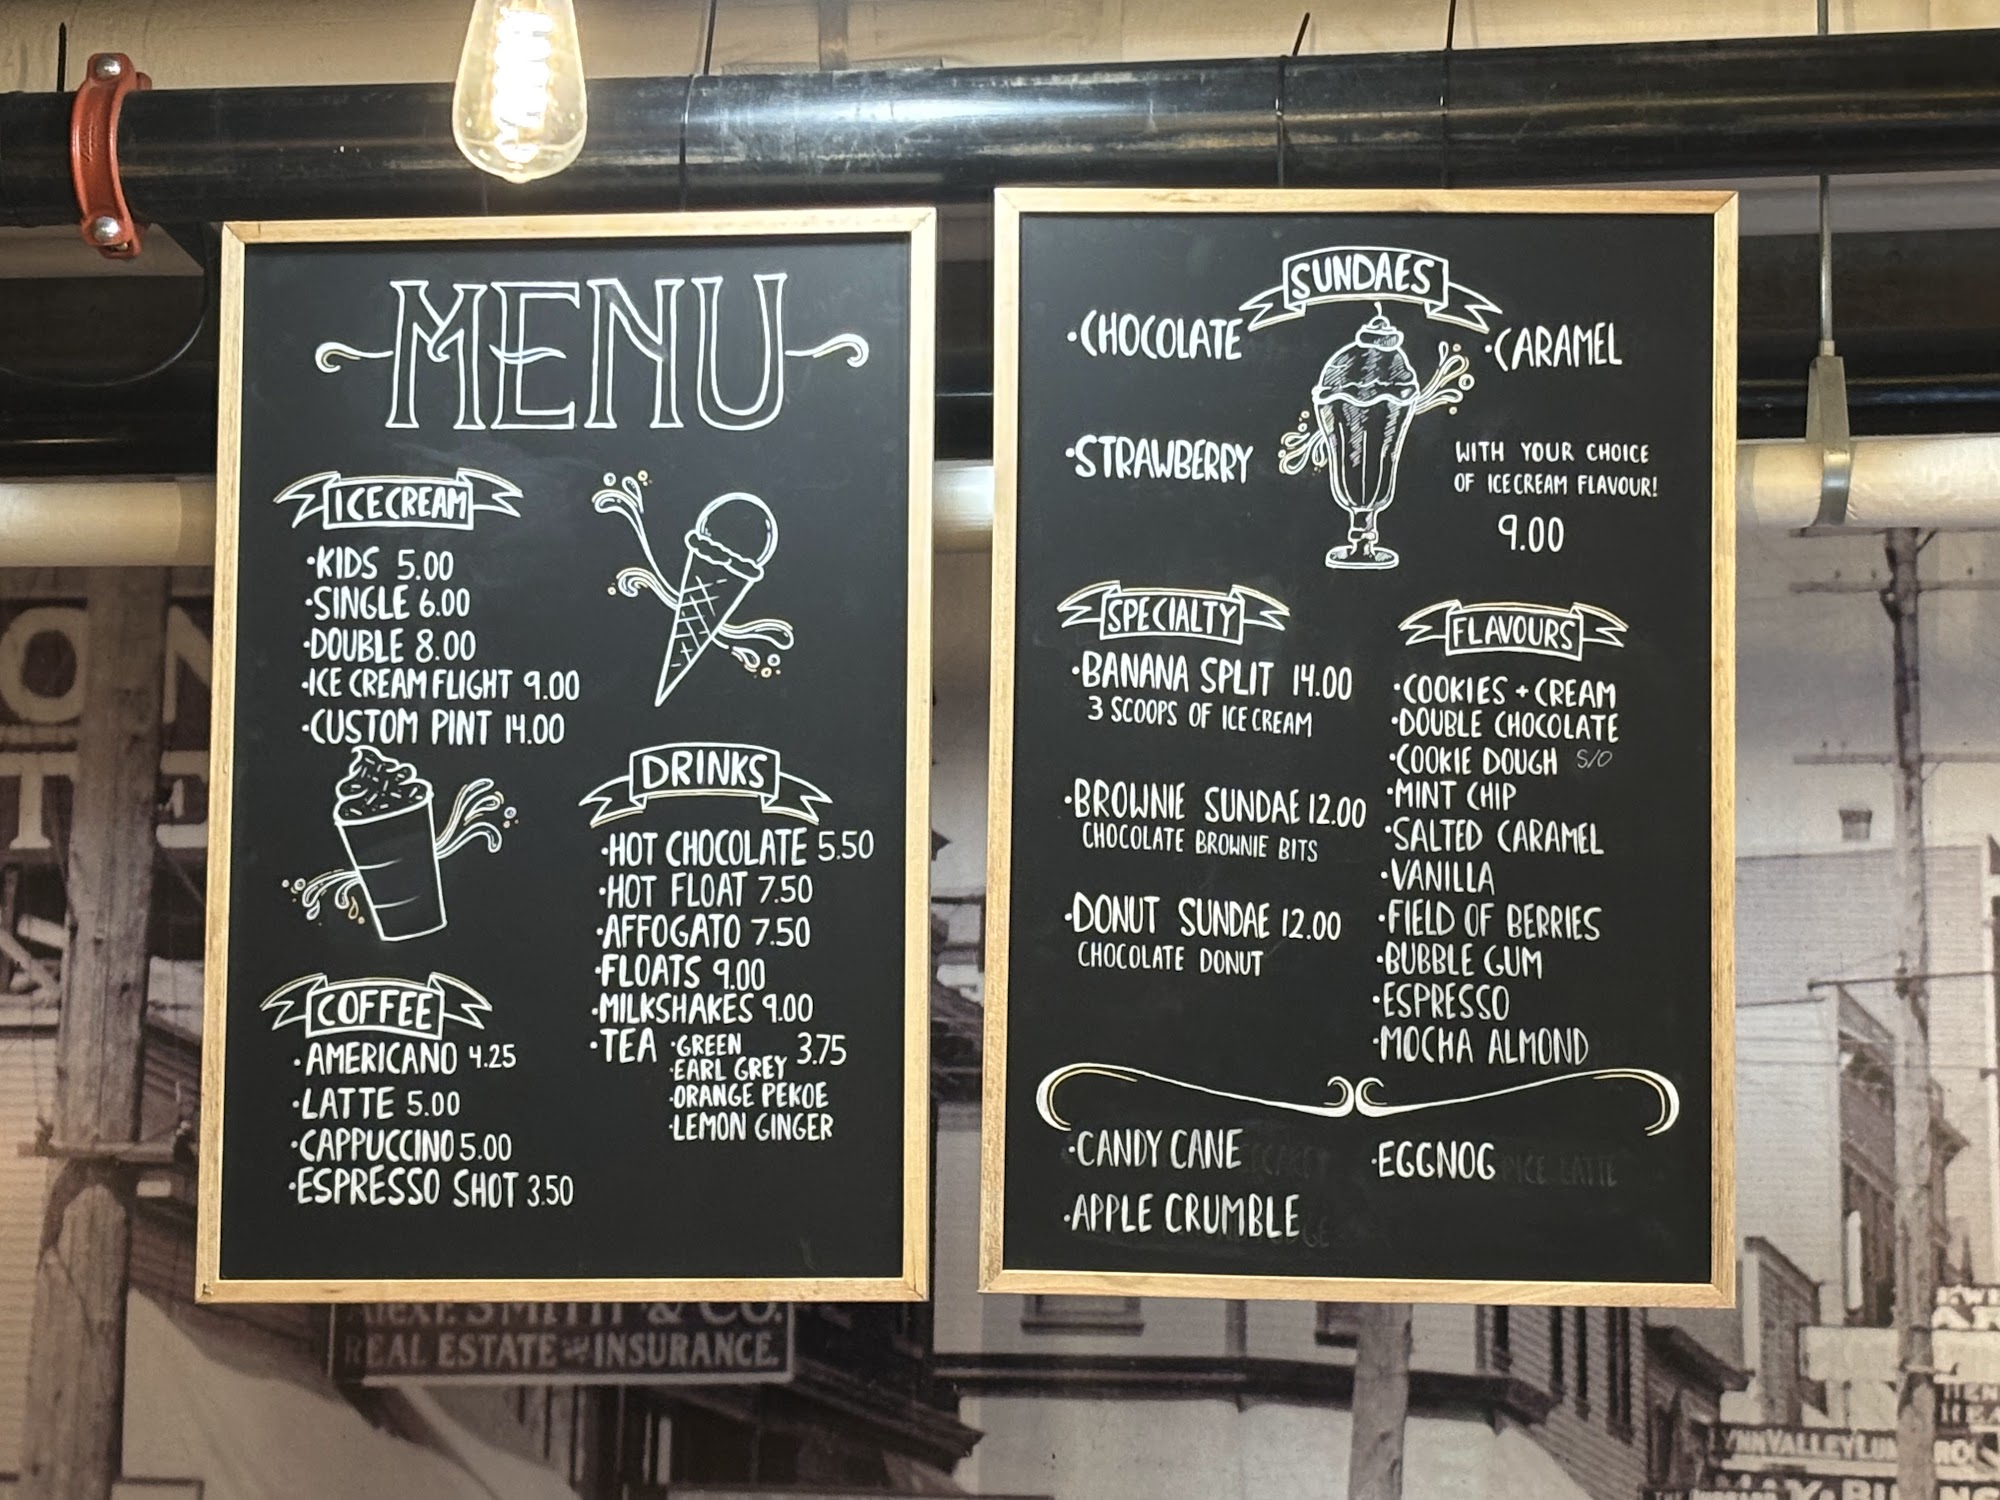 MENU
ICE CREAM
·KIDS 5.00
·SINGLE 6.00
·DOUBLE 8.00
·ICE CREAM FLIGHT 9.00
·CUSTOM PINT 14.00
DRINKS
·HOT CHOCOLATE 5.50
·HOT FLOAT 7.50
·AFFOGATO 7.50
·FLOATS 9.00
·MILKSHAKES 9.00
·TEA ·GREEN 3.75
·EARL GREY
·ORANGE PEKOE
·LEMON GINGER
COFFEE
·AMERICANO 4.25
·LATTE 5.00
·CAPPUCCINO 5.00
·ESPRESSO SHOT 3.50
SUNDAES
·CHOCOLATE
·CARAMEL
·STRAWBERRY
WITH YOUR CHOICE
OF ICE CREAM FLAVOUR!
9.00
SPECIALTY
·BANANA SPLIT 14.00
3 SCOOPS OF ICE CREAM
·BROWNIE SUNDAE 12.00
CHOCOLATE BROWNIE BITS
·DONUT SUNDAE 12.00
CHOCOLATE DONUT
FLAVOURS
·COOKIES + CREAM
·DOUBLE CHOCOLATE
·COOKIE DOUGH S/O
·MINT CHIP
·SALTED CARAMEL
·VANILLA
·FIELD OF BERRIES
·BUBBLE GUM
·ESPRESSO
·MOCHA ALMOND
·CANDY CANE
·EGGNOG
·APPLE CRUMBLE
SMITH & CO.
REAL ESTATE AND INSURANCE.